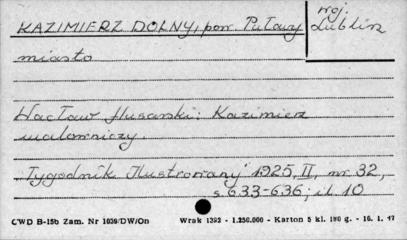 KAZIMIERZ DOLNY, pow. Puławy
woj. Lublin
miasto
Wacław Husarski: Kazimierz
malowniczy.
"Tygodnik Ilustrowany" 1925, II, nr 32,
s. 633-636; il. 10
CWD B-15b Zam. Nr 1039/DW/On Wrak 1392 - 1.250.000 - Karton 5 kl. 180 g. - 16. 1. 47